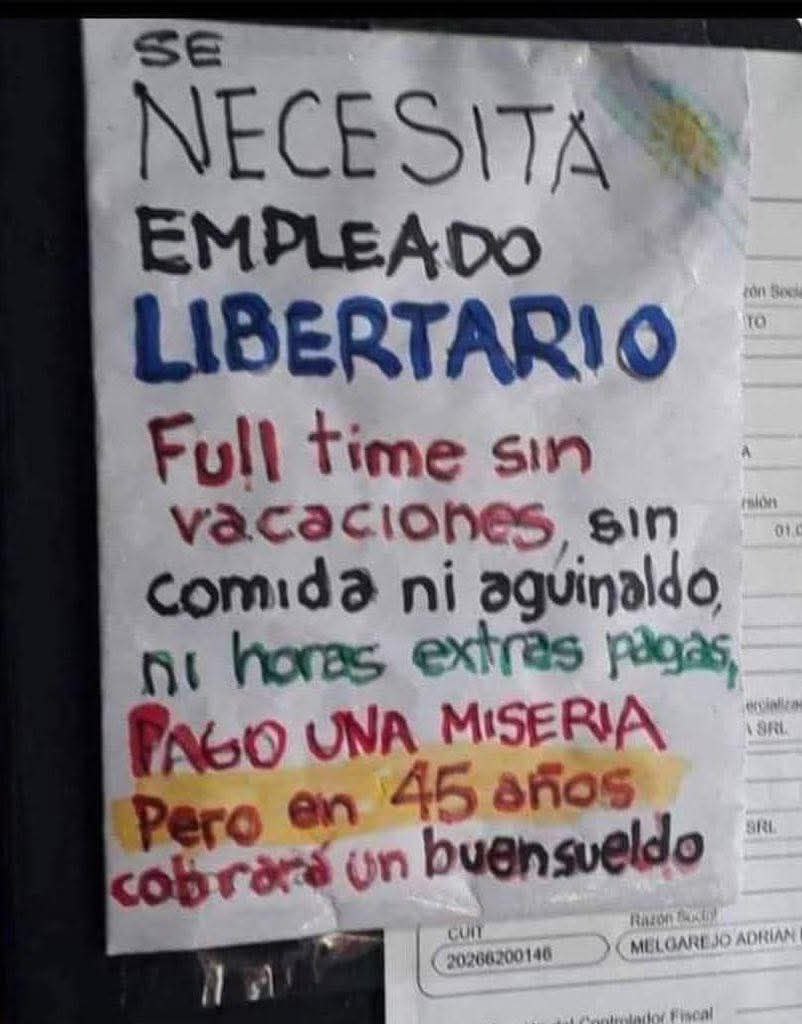 SE
NECESITA
EMPLEADO
LIBERTARIO
Full time sin
vacaciones, sin
comida ni aguinaldo,
ni horas extras pagas,
PAGO UNA MISERIA
Pero en 45 años
cobrará un buen sueldo
zón Socia
TO
A
rsión
01.0
ercializa
A SRL
SRL
CUIT
Razón Social
20266200146
MELGAREJO ADRIAN
del Controlador Fiscal